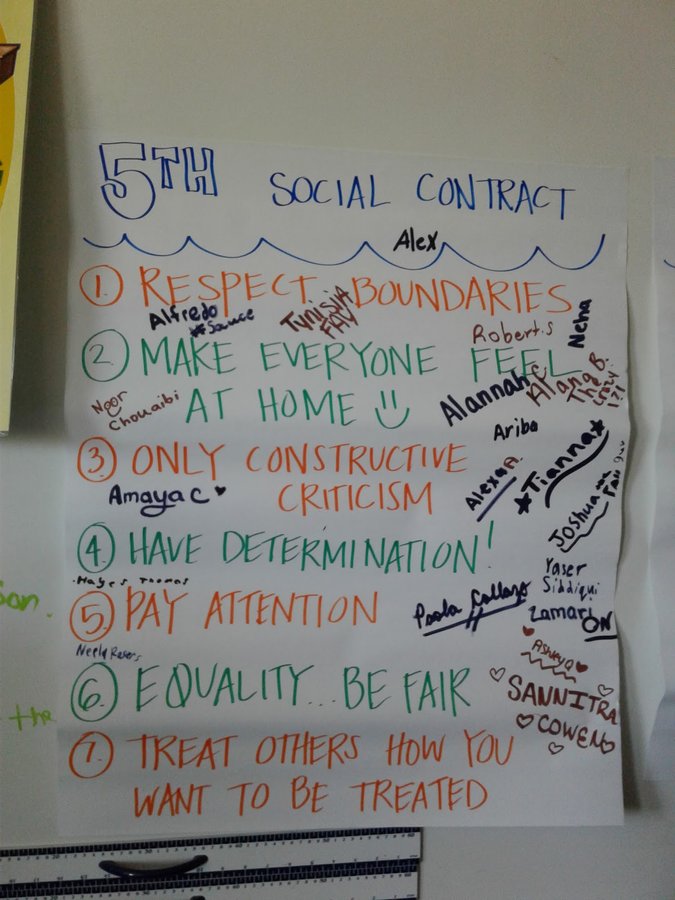 5TH SOCIAL CONTRACT
Alex
1. RESPECT BOUNDARIES
Alfredo
Sauce
Tunisia
FAV
Neha
Robert.S
2 MAKE EVERYONE FEEL
AT HOME
Noor
Chouaibi
Alannah C
Alana B.
The
Crazy
Ariba
3 ONLY CONSTRUCTIVE
CRITICISM
Amaya C
Alexa A.
Tianna
Joshua
4 HAVE DETERMINATION!
Hayes Thomas
Yaser
Siddiqui
5 PAY ATTENTION
Paola Collazo
Zamari
ON
6 EQUALITY... BE FAIR
SANNITRA
COWEN
7. TREAT OTHERS HOW YOU
WANT TO BE TREATED
the